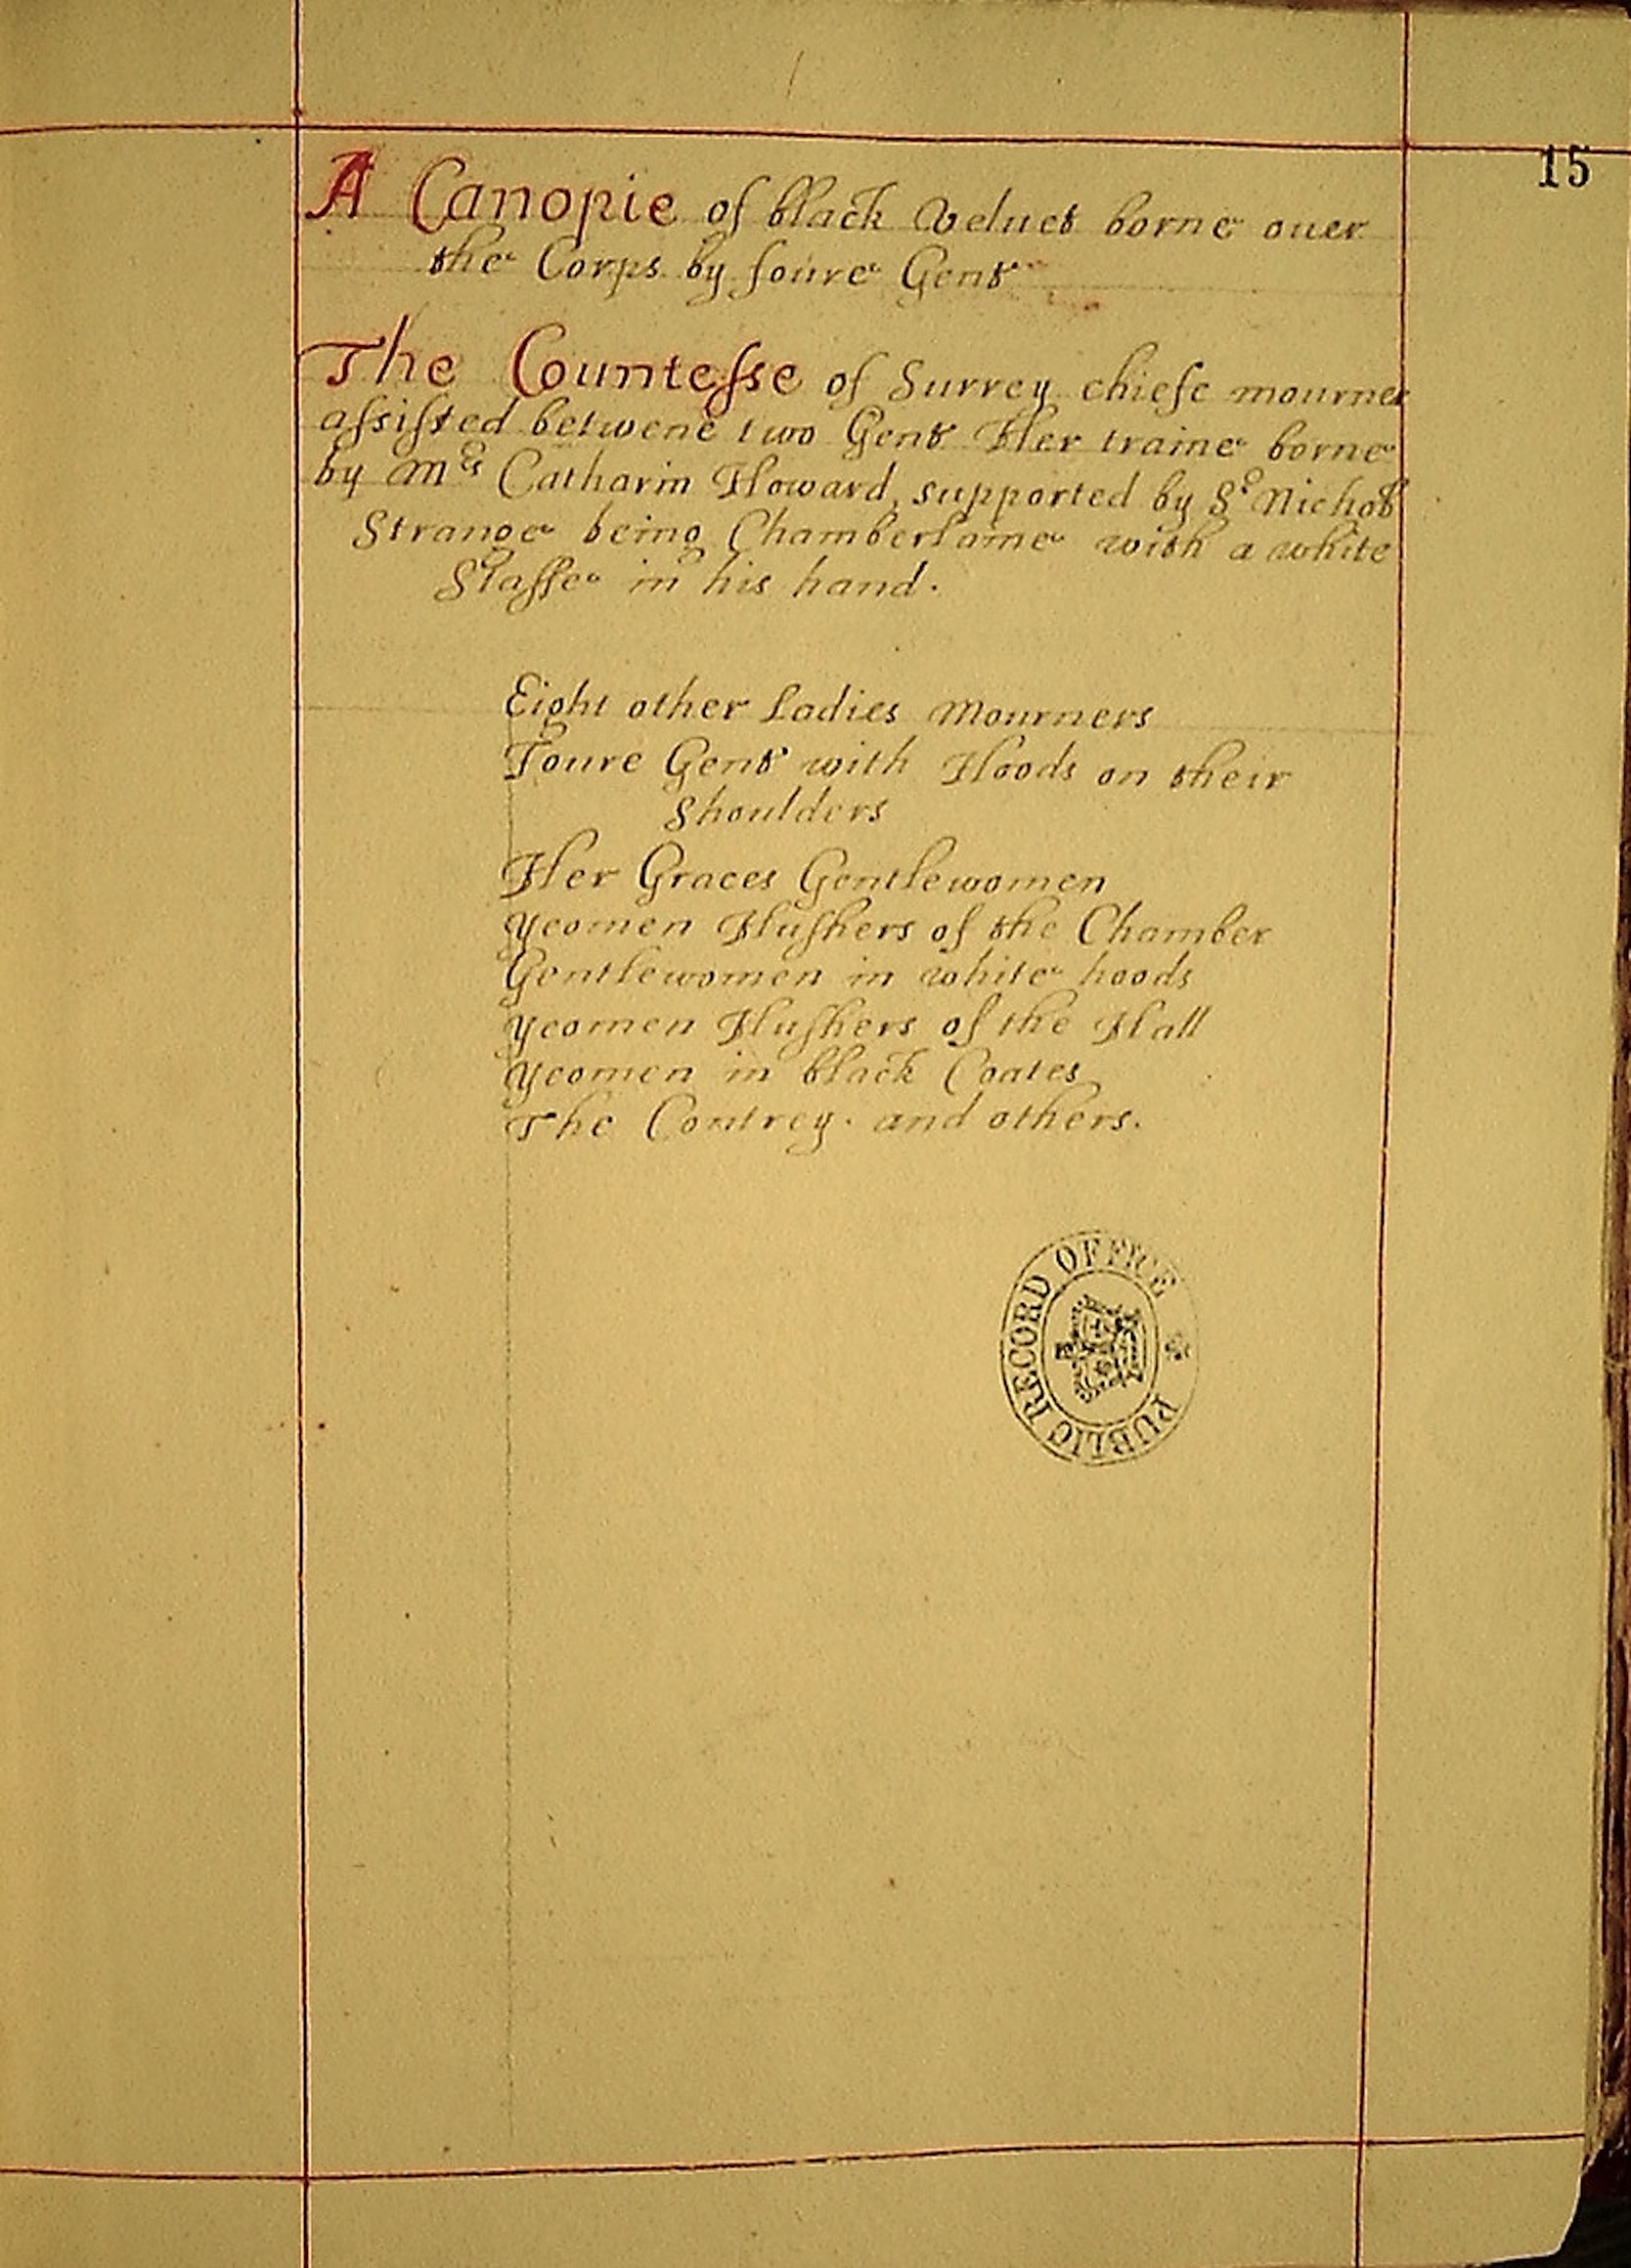 15
A Canopie of black veluet borne ouer
the Corps by foure Gent
The Countesse of Surrey chiefe mourner
assisted betwene two Gent Her traine borne
by Mrs Catharin Howard, supported by Sr Nichol
Strange being Chamberlaine with a white
Staffe in his hand.
Eight other Ladies Mourners
Foure Gent with Hoods on their
Shoulders
Her Graces Gentlewomen
Yeomen Hushers of the Chamber
Gentlewomen in white hoods
Yeomen Hushers of the Hall
Yeomen in black Coates
The Contrey. and others.
PUBLIC RECORD OFFICE